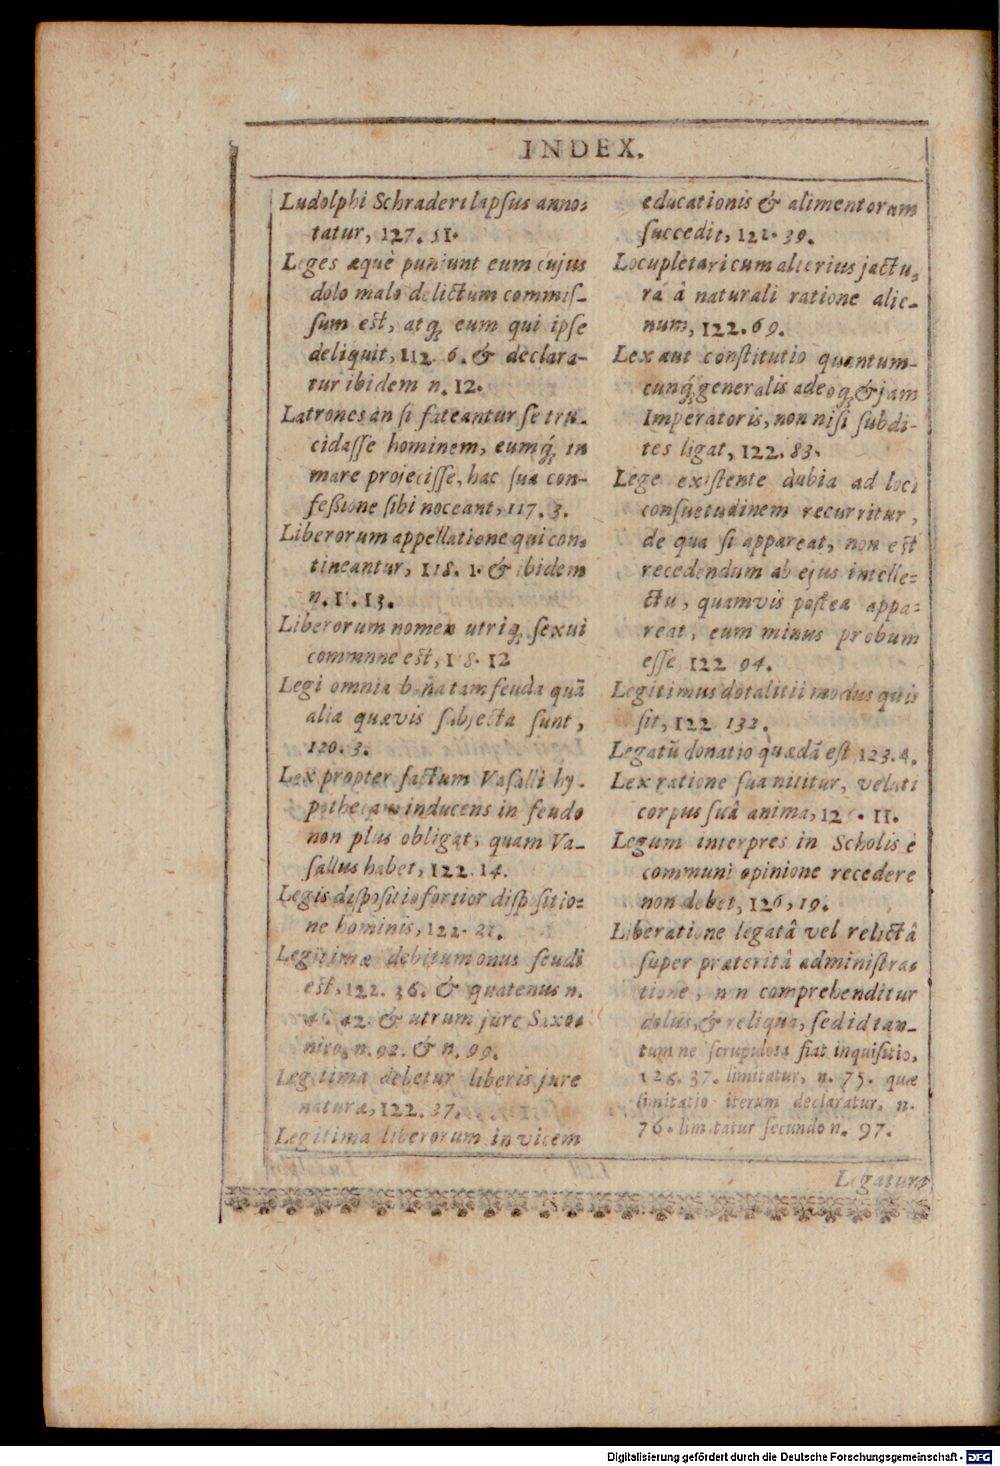 INDEX.
Ludolphi Schraderi lapſus anno-
tatur, 127. 51.
Leges æquè puniunt eum cujus
dolo malo delictum commiſ-
ſum eſt, atq́; eum qui ipſe
deliquit, 112. 6. & declara-
tur ibidem n. 12.
Latrones an ſi fateantur ſe tru-
cidaſſe hominem, eumq́; in
mare projeciſſe, hac ſua con-
feßione ſibi noceant, 117. 3.
Liberorum appellatione qui con-
tineantur, 118. 1. & ibidem
n. 11. 13.
Liberorum nomen utriq; ſexui
commnne eſt, 118. 12
Legi omnia bona tam feuda quā
alia quævis ſubjecta ſunt,
120. 3.
Lex propter factum Vaſalli hy-
pothecam inducens in feudo
non plus obligat, quam Va-
ſallus habet, 122. 14.
Legis diſpoſitio fortior diſpoſitio-
ne hominis, 122. 21.
Legitimæ debitum onus feudi
eſt, 122. 36. & quatenus n.
42. & utrum jure Saxo-
nico, n. 92. & n. 99.
Legitima debetur liberis jure
naturæ, 122. 37.
Legitima liberorum in vicem
educationis & alimentorum
ſuccedit, 122. 39.
Locupletari cum alterius jactu-
râ à naturali ratione alie-
num, 122. 69.
Lex aut conſtitutio quantum-
cunq́; generalis adeoq́; & jam
Imperatoris, non niſi ſubdi-
tes ligat, 122. 83.
Lege exiſtente dubia ad loci
conſuetudinem recurritur,
de qua ſi appareat, non eſt
recedendum ab ejus intelle-
ctu, quamvis poſtea appa-
reat, eum minus probum
eſſe 122 94.
Legitimus dotalitii modus quis
ſit, 122 132.
Legatū donatio quædā eſt 123. 4.
Lex ratione ſua nititur, veluti
corpus ſuâ anima, 12 . 11.
Legum interpres in Scholis è
communi opinione recedere
non debet, 126, 19.
Liberatione legatâ vel relictâ
ſuper præteritâ adminiſtra-
tione, non comprehenditur
dolus, & reliqua, ſed id tan-
tum ne ſcrupuloſa fiat inquiſitio,
126. 37. limitatur, n. 75. quæ
limitatio iterum declaratur, n.
76. limitatur ſecundo n. 97.
Legatura
Digitalisierung gefördert durch die Deutsche Forschungsgemeinschaft - DFG